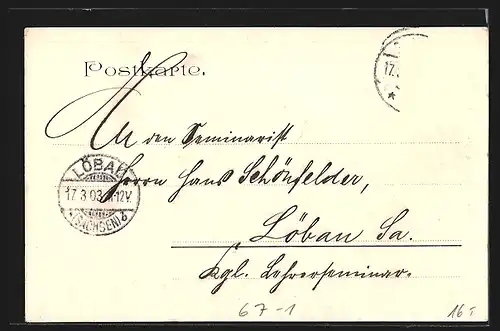 Postkarte.
17.
An den Seminarist
LÖBAU
17.3.03 11-12V.
(SACHSEN) 2
Herrn Hans Schönfelder,
Löbau Sa.
Kgl. Lehrerseminar.
67-1
16.-